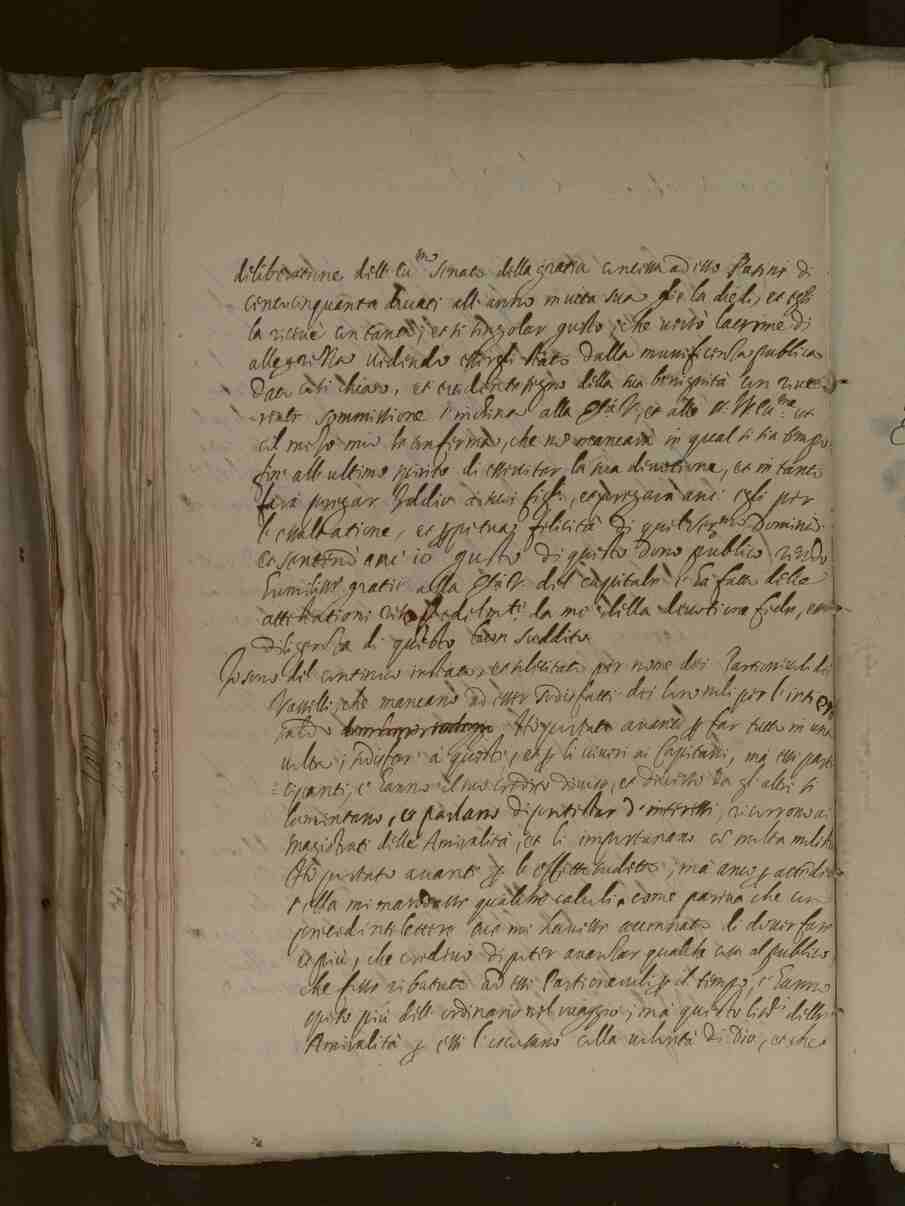 deliberatione dell'Ecc.mo Senato della gratia concessa ad esso Pasini di
cento cinquanta ducati all'anno in vita sua gie la diedi, et egli
la ricevè con tanto, et sì singolar gusto, che versò lacrime di
allegrezza vedendo essergli stato dalla munificenza publica
dato così chiaro, et evidente segno della sua benignità con rive-
rente sommissione s'inchina alla Ser.tà V., et alle VV. Ecc.me et
col mezo mio le conferma, che non mancarà in qual si sia tempo
fin all'ultimo spirito di essercitar la sua devotione, et in tanto
farà pregar Iddio a suoi figli, et pregarà anc' egli per
l'essaltatione, et perpetua felicità di quel Ser.mo Dominio.
Et sentendo anc' io gusto di questo dono publico rendo
humiliss.e gratie alla Ser.tà V. del capitale c'ha fatto delle
attestationi da me della devotione, fede, et
diligenza di questo buon suddito.
Io sono del continuo instato, et sollecitato per nome dei Partionevoli dei
Vasselli, che mancano ad esser sodisfatti dei loro noli per l'intiero
saldo. Ho portato avanti per far tutto in una
volta; sodisfar à questi, et per li viveri ai Capitani, ma essi parti-
cipanti, c'hanno il suo credito diviso, et distinto da gl'altri si
lamentano, et parlano di protestar d'interessi, ricorrono ai
Magistrati delle Amiralità, et li importunano
Ho portato avanti per le ; ma anco per attender
s'ella mi mandasse qualche calculo, come pareva che con
precedenti lettere sue mi havesse accennato di dover fare
et più, che credevo di poter avanzar qualche cosa al publico
che fosse ributtato ad essi Partionevoli per il tempo, c'hanno
speso più dell'ordinario nel viaggio; ma questi delle
Amiralità per essi l'escusano colla volontà di Dio, et che